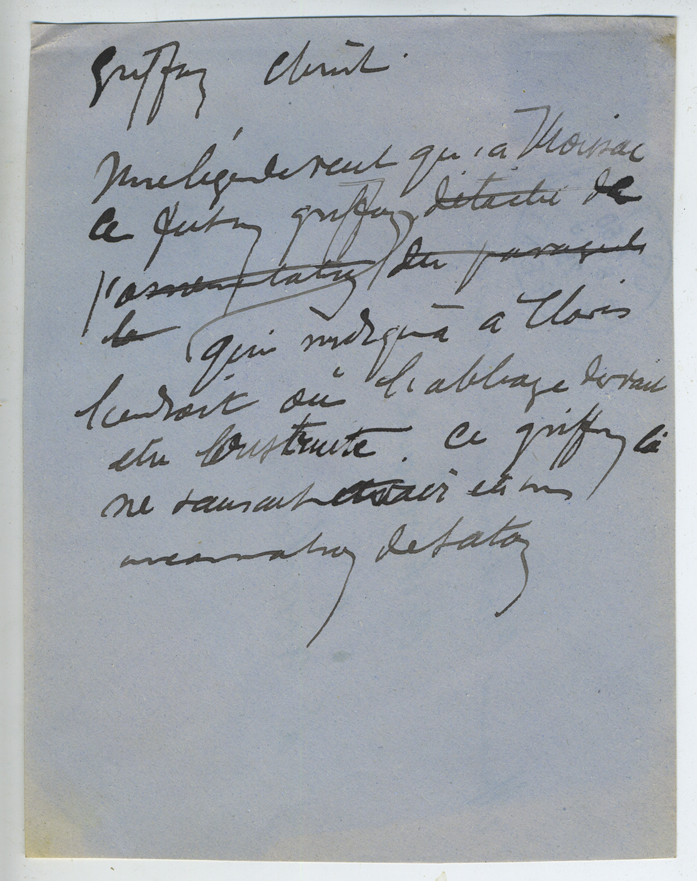 Griffon Christ.
Une légende veut qu'à Moissac
ce fut un griffon détaché de
l'ornementation du
le qui indiqua à Clovis
l'endroit où l'abbaye devait
être construite. Ce griffon là
ne saurait être une
incarnation de Satan